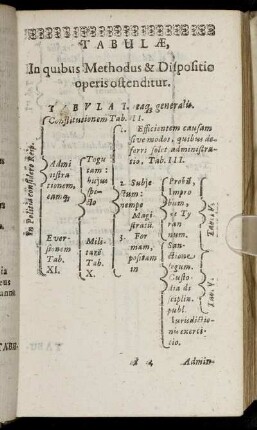 TABULÆ,
In quibus Methodus & Dispositio
operis ostenditur.
TABULA I. eaq; generalis.
Constitutionem Tab. II.
In Politia considero Reip.
Admi
nistra
tionem,
eamq;
Ever-
sionem
Tab.
XI.
Toga
tam:
hujus
spe-
cto
Mili-
tarē
Tab.
X.
1. Efficientem causam
sive modos, quibus de-
ferri solet administra-
tio. Tab. III.
2. Subje-
ctum:
nempe
Magi
stratū.
3. For
mam,
positam
in
Probū,
Impro
bum,
Ty
ran
num.
San-
ctione
legum.
Custo
dia di
sciplin.
publ.
Jurisdictio-
nis exerci-
tio.
Tab. V.
Admin-